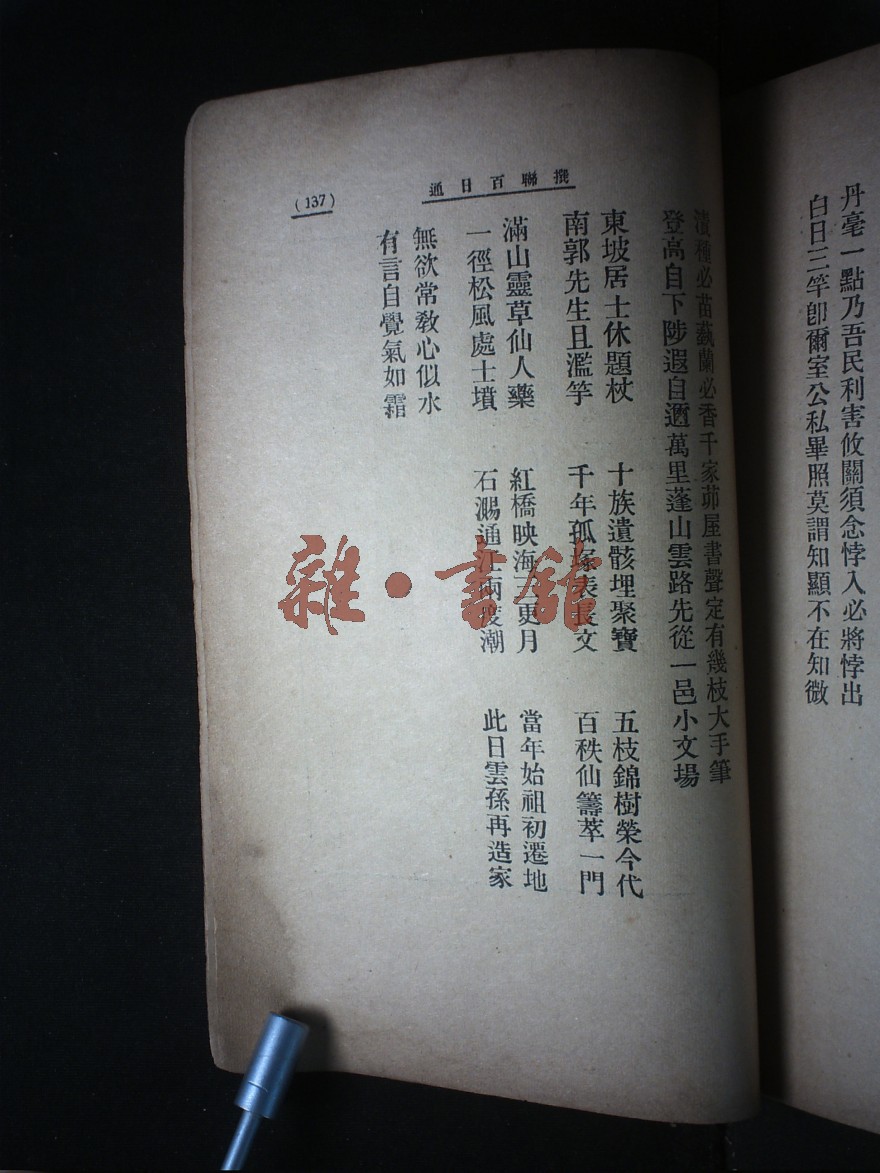 丹毫一點乃吾民利害攸關須念悖入必將悖出
白日三竿卽爾室公私畢照莫謂知顯不在知微
撰聯百日通
(137)
漬種必苗蓺蘭必香千家茆屋書聲定有幾枝大手筆
登高自下陟遐自邇萬里蓬山雲路先從一邑小文場
東坡居士休題杖
南郭先生且濫竽
十族遺骸埋聚寶
千年孤塚表長文
五枝錦樹榮今代
百秩仙籌萃一門
滿山靈草仙人藥
一徑松風處士墳
紅橋映海三更月
石通江兩度潮
當年始祖初遷地
此日雲孫再造家
無欲常敎心似水
有言自覺氣如霜
雜·書舘